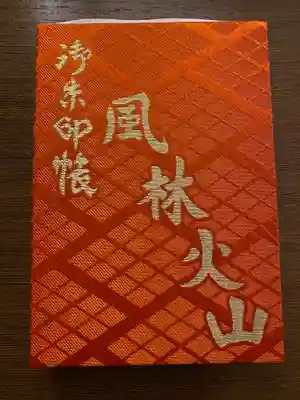 御朱印帳
風林火山